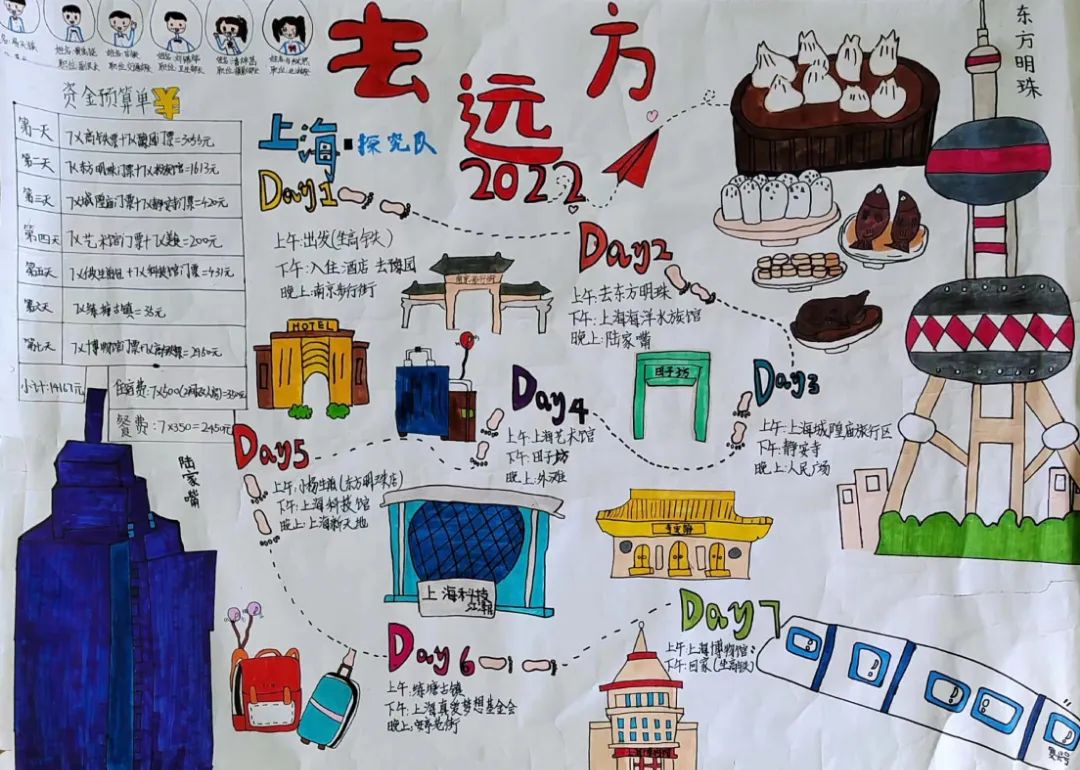 去远方
2022
上海·探究队
资金预算单¥
第一天 7×高铁票+7×豫园门票=3955元
第二天 7×东方明珠门票+7×水族馆=1613元
第三天 7×城隍庙门票+7×静安寺门票=420元
第四天
7×艺术宫门票+7× =200元
第五天
+7×科技馆门票=431元
第六天 7×练塘古镇=35元
第七天 7×博物馆门票+7×高铁票=2950元
小计:14167元
住宿费:7×500
餐费:7×350=2450元
Day1
上午:出发(坐高铁)
下午:入住酒店 去豫园
晚上:南京步行街
Day2
上午:去东方明珠
下午:上海海洋水族馆
晚上:陆家嘴
Day3
上午:上海城隍庙旅行区
下午:静安寺
晚上:人民广场
Day4
上午:上海艺术馆
下午:田子坊
晚上:外滩
Day5
上午:小杨生煎(东方明珠店)
下午:上海科技馆
晚上:上海新天地
Day6
上午:练塘古镇
下午:上海真爱梦想基金会
Day7
上午:上海博物馆
下午:回家(坐高铁)
东方明珠
陆家嘴
HOTEL
田子坊
上海科技
复兴号